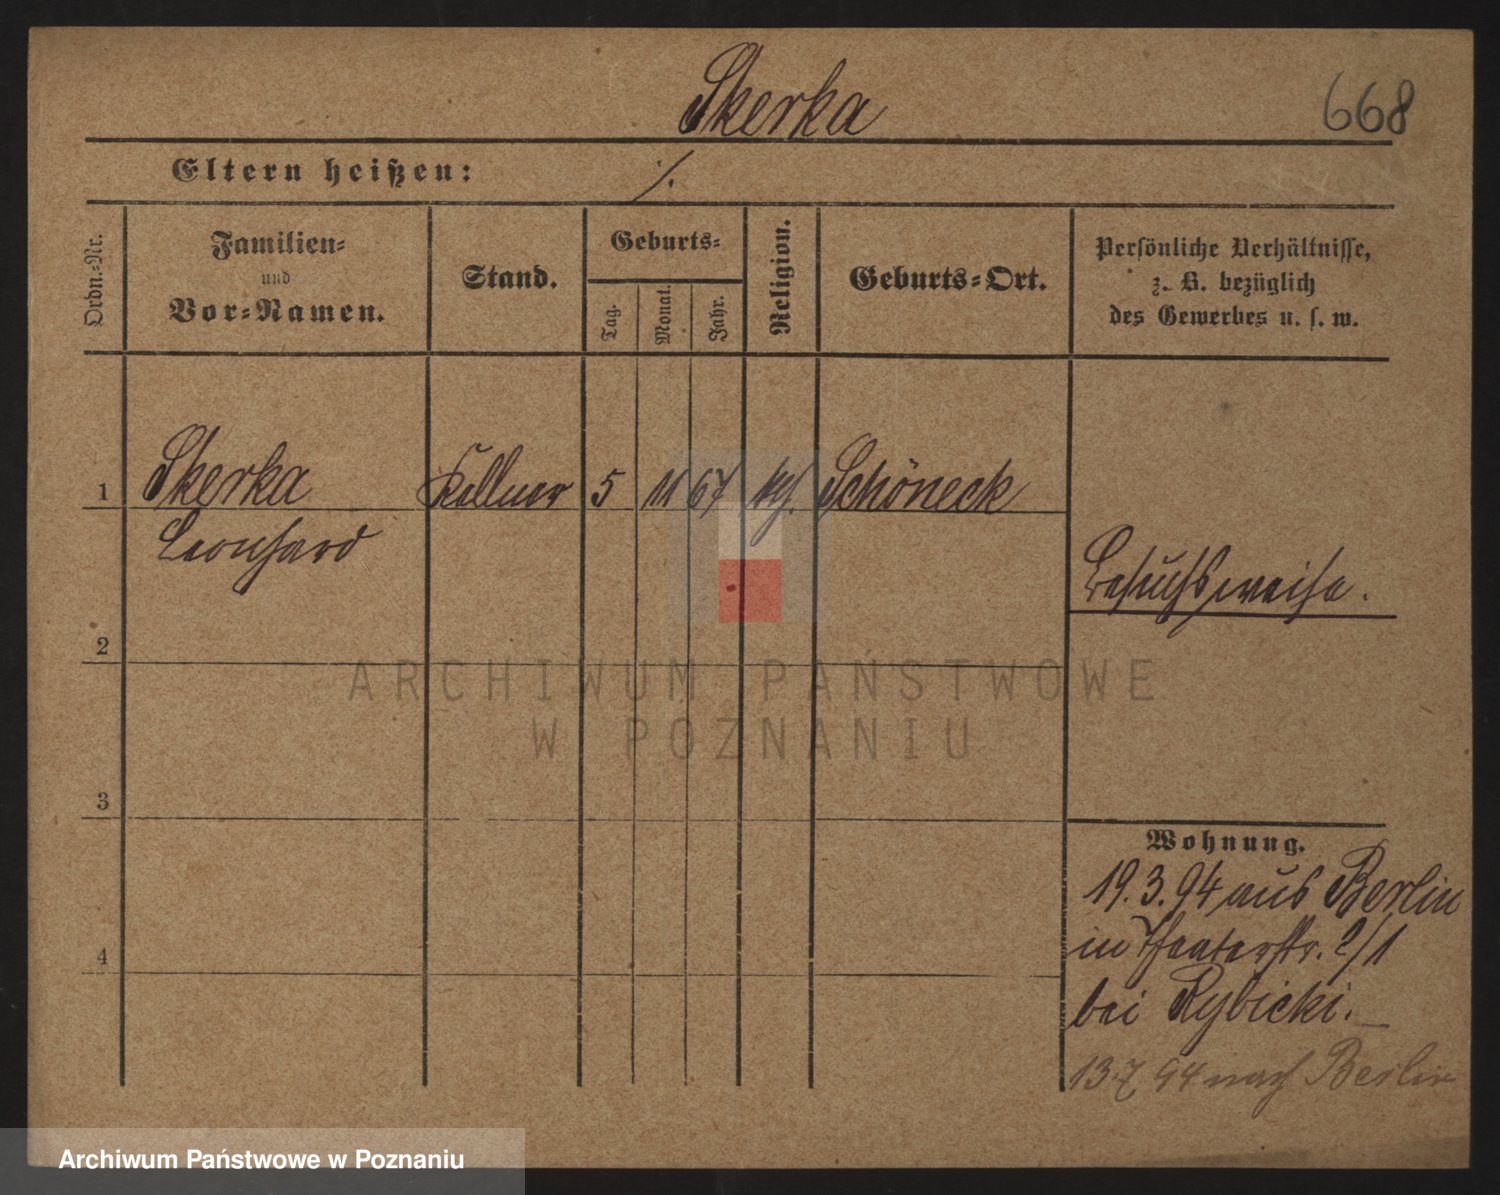 Skerka
668
Eltern heißen: ./.
Ordn.-Nr.
Familien-
und
Vor-Namen.
Stand.
Geburts-
Tag.
Monat.
Jahr.
Religion.
Geburts-Ort.
Persönliche Verhältnisse,
z. B. bezüglich
des Gewerbes u. s. w.
1 Skerka Kellner 5 11 67 kth. Schöneck
Leonhard
Besuchsweise.
2
ARCHIWUM PAŃSTWOWE
W POZNANIU
3
Wohnung.
19.3.94 aus Berlin
in Theaterstr. 2/1
4
bei Rybicki.
13.7 94 nach Berlin
Archiwum Państwowe w Poznaniu